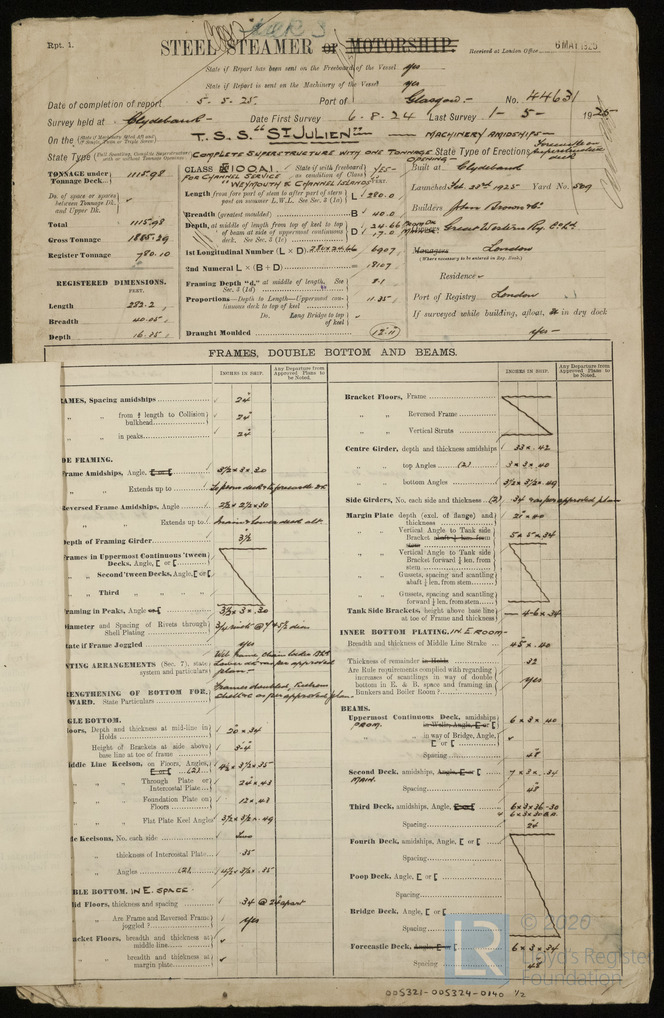 Rpt. 1.
STEEL STEAMER or MOTORSHIP.
Received at London Office 6 MAY 1925
State if Report has been sent on the Freeboard of the Vessel yes
State if Report is sent on the Machinery of the Vessel yes
Date of completion of report 5-5-25. Port of Glasgow No. 44631
Survey held at Clydebank Date First Survey 6-8-24 Last Survey 1-5-1925
On the T.S.S. "ST JULIEN" MACHINERY AMIDSHIPS
State Type COMPLETE SUPERSTRUCTURE WITH ONE TONNAGE OPENING State Type of Erections Forecastle on superstructure deck
TONNAGE under Tonnage Deck... 1115.98
Do. of space or spaces between Tonnage Dk. and Upper Dk.
Total 1115.98
Gross Tonnage 1885.29
Register Tonnage 780.10
REGISTERED DIMENSIONS.
FEET.
Length 282.2
Breadth 40.05
Depth 16.35
CLASS 100A1. State if with freeboard as condition of Class yes
FOR CHANNEL SERVICE
"WEYMOUTH & CHANNEL ISLANDS"
Length from fore part of stem to after part of stern post on summer L.W.L. See Sec. 3 (1a) L 280.0
Breadth (greatest moulded) B 40.0
Depth, at middle of length from top of keel to top of beam at side of uppermost continuous deck. See Sec. 5 (1c) D 24.66 17.0
1st Longitudinal Number (L × D) 280 × 24.66 6907
2nd Numeral L × (B + D) 18107
Framing Depth "d," at middle of length. See Sec. 3 (1d) 8.1
Proportions—Depth to Length—Uppermost continuous deck to top of keel 11.35
Do. Long Bridge to top of keel
Draught Moulded 12.11
Built at Clydebank
Launched Feb. 23rd 1925 Yard No. 509
Builders John Brown & Co.
Owners Great Western Ry. Co. Ld.
Managers London
(Where necessary to be entered in Reg. Book.)
Residence
Port of Registry London
If surveyed while building, afloat, or in dry dock
yes
FRAMES, DOUBLE BOTTOM AND BEAMS.
INCHES IN SHIP. Any Departure from Approved Plans to be Noted.
RAMES, Spacing amidships 24"
" " from ⅕ length to Collision bulkhead 24"
" " in peaks 24"
DE FRAMING.
Frame Amidships, Angle, [ or [ 5½ × 3 × .30
" " Extends up to
Reversed Frame Amidships, Angle 2½ × 2½ × .30
" " Extends up to main & lower deck alt.
Depth of Framing Girder 3½
Frames in Uppermost Continuous 'tween Decks, Angle, [ or [
" Second 'tween Decks, Angle, [ or [
" Third " "
Framing in Peaks, Angle or [ 3½ × 3 × .30
Diameter and Spacing of Rivets through Shell Plating
State if Frame Joggled yes
TING ARRANGEMENTS (Sec. 7), state system and particulars
ENGTHENING OF BOTTOM FORWARD. State Particulars
GLE BOTTOM.
oors, Depth and thickness at mid-line in Holds 20 × 34
Height of Brackets at side above base line at toe of frame 34
iddle Line Keelson, on Floors, Angles, [ or [ (2) 4½ × 3½ × .35
" " Through Plate or Intercostal Plate 24 × .43
" " Foundation Plate on Floors 12 × .43
" " Flat Plate Keel Angles 3½ × 3½ × .49
de Keelsons, No. each side
" " thickness of Intercostal Plate .35
" " Angles (2) 4½ × 3½ × .35
BLE BOTTOM. IN E. SPACE
lid Floors, thickness and spacing .34 @ 24" apart
" " Are Frame and Reversed Frame joggled? yes
acket Floors, breadth and thickness at middle line
" " breadth and thickness at margin plate
Bracket Floors, Frame
" " Reversed Frame
" " Vertical Struts
Centre Girder, depth and thickness amidships 33 × .42
" " top Angles (2) 3 × 3 × .40
" " bottom Angles 3½ × 3½ × .49
Side Girders, No. each side and thickness (2) .34 as per approved plan
Margin Plate depth (excl. of flange) and thickness 21 × .40
" " Vertical Angle to Tank side Bracket abaft ¼ len. from stem 5 × 5 × .34
" " Vertical Angle to Tank side Bracket forward ¼ len. from stem
" " Gussets, spacing and scantling abaft ¼ len. from stem
" " Gussets, spacing and scantling forward ¼ len. from stem
Tank Side Brackets, height above base line at toe of Frame and thickness 4-6 × .34
INNER BOTTOM PLATING. IN E ROOM
Breadth and thickness of Middle Line Strake 45 × .40
Thickness of remainder in Holds .32
Are Rule requirements complied with regarding increases of scantlings in way of double bottoms in E. & B. space and framing in Bunkers and Boiler Room? yes
BEAMS.
Uppermost Continuous Deck, amidships 6 × 3 × .40
PROM.
" " in way of Bridge, Angle, [ or [
Spacing 48
Second Deck, amidships, Angle, [ or [ 7 × 3 × .34
MAIN.
Spacing 48
Third Deck, amidships, Angle, [ or [ 6 × 3 × .36-30
Spacing 24
Fourth Deck, amidships, Angle, [ or [
Spacing
Poop Deck, Angle, [ or [
Spacing
Bridge Deck, Angle, [ or [
Spacing
Forecastle Deck, Angle, [ or [ 6 × 3 × .34
Spacing 48
LR
© 2020
Lloyd's Register
Foundation
005321-005324-0140 1/2